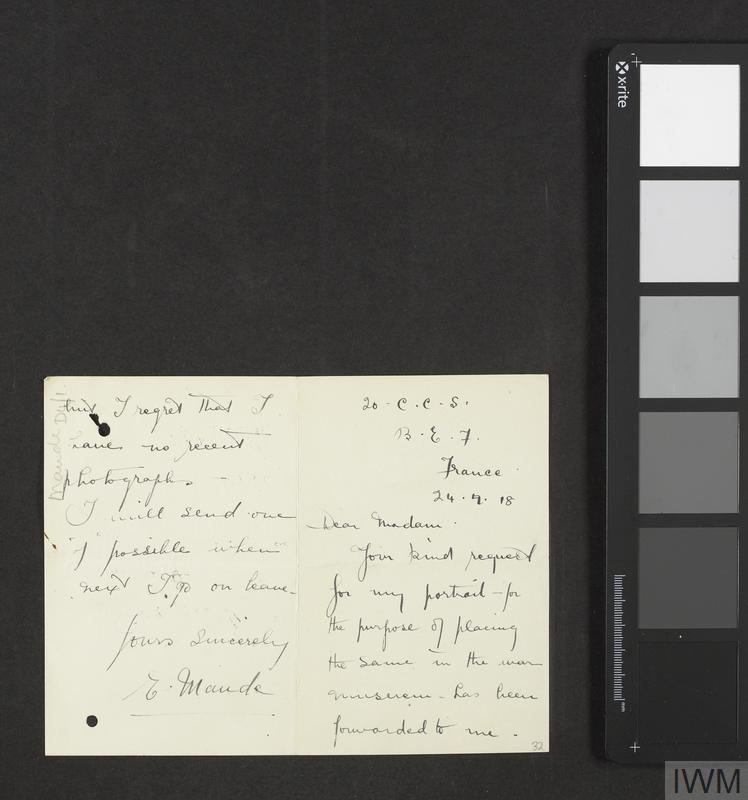 20 · C. C. S.
B. E. F.
France
24. 9. 18
Dear Madam.
Your kind request
for my portrait – for
the purpose of placing
the same in the war
museum – has been
forwarded to me.
32
but I regret that I
have no recent
photographs –
I will send one
if possible when
next I go on leave –
Yours sincerely
E. Maude
Maude
x-rite
mm
IWM